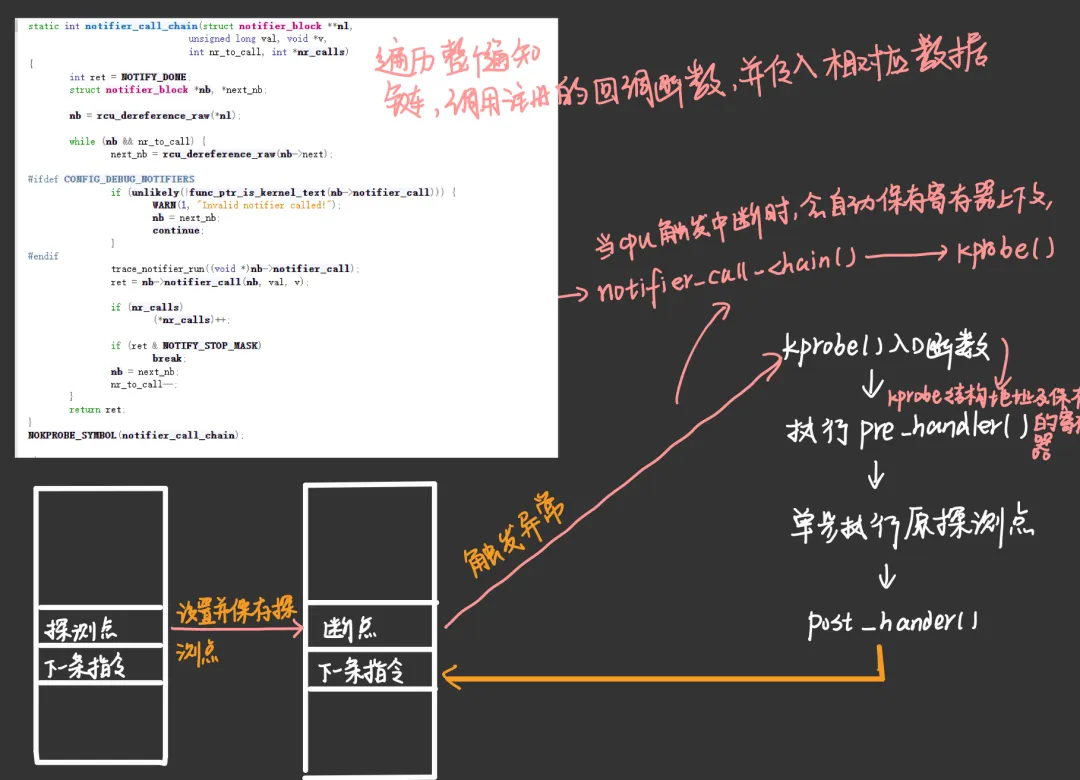 static int notifier_call_chain(struct notifier_block **nl,
unsigned long val, void *v,
int nr_to_call, int *nr_calls)
{
int ret = NOTIFY_DONE;
struct notifier_block *nb, *next_nb;
nb = rcu_dereference_raw(*nl);
while (nb && nr_to_call) {
next_nb = rcu_dereference_raw(nb->next);
#ifdef CONFIG_DEBUG_NOTIFIERS
if (unlikely(!func_ptr_is_kernel_text(nb->notifier_call))) {
WARN(1, "Invalid notifier called!");
nb = next_nb;
continue;
}
#endif
trace_notifier_run((void *)nb->notifier_call);
ret = nb->notifier_call(nb, val, v);
if (nr_calls)
(*nr_calls)++;
if (ret & NOTIFY_STOP_MASK)
break;
nb = next_nb;
nr_to_call--;
}
return ret;
}
NOKPROBE_SYMBOL(notifier_call_chain);
遍历整个通知
链,调用注册的回调函数,并传入相对应数据
当cpu触发中断时,会自动保存寄存器上下文,
notifier_call_chain() → kprobe()
kprobe()入口函数
kprobe结构地址及保存
的寄存
器
执行pre_handler()
单步执行原探测点
post_hander()
触发异常
设置并保存探
测点
探测点
下一条指令
断点
下一条指令